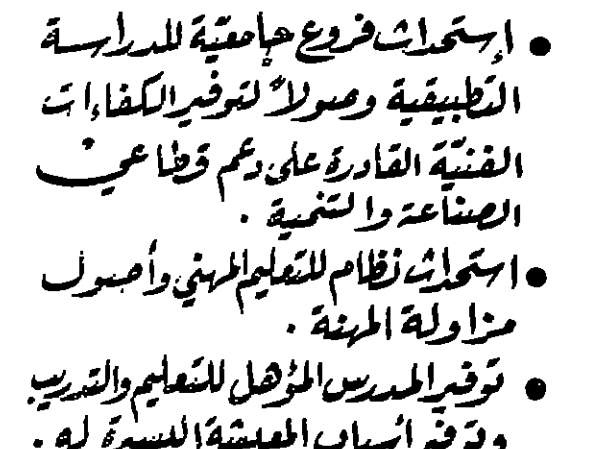 • إستحداث فروع جامعيّة للدراسة
التطبيقية وصولاً لتوفير الكفاءات
الفنيّة القادرة على دعم قطاعي
الصناعة والتنمية .
• استحداث نظام للتعليم المهني وأصول
مزاولة المهنة .
• توفير المدرس المؤهل للتعليم والتدريب
وتوفير أسباب المعيشة الميسرة له .